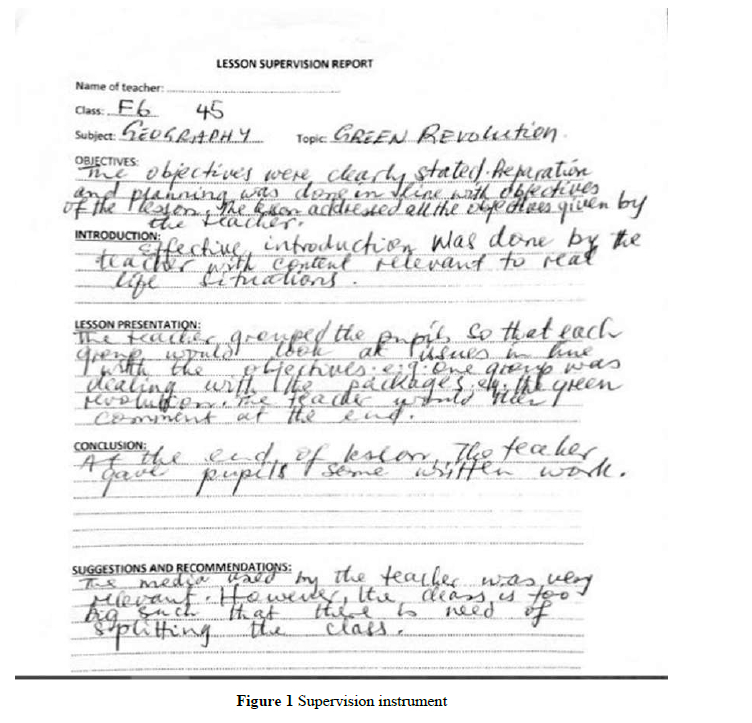 LESSON SUPERVISION REPORT
Name of teacher:
Class: F6 45
Subject: GEOGRAPHY Topic: GREEN REvolution.
OBJECTIVES:
The objectives were clearly stated. Preparation
and planning was done in line with objectives
of the lesson. The lesson addressed all the objectives given by
the teacher.
INTRODUCTION:
Effective introduction was done by the
teacher with content relevant to real
life situations.
LESSON PRESENTATION:
The teacher grouped the pupils so that each
group would look at issues in line
with the objectives. e.g. one group was
dealing with the packages, eg. the green
revolution. The teacher would then
comment at the end.
CONCLUSION:
At the end of lesson, The teacher
gave pupils some written work.
SUGGESTIONS AND RECOMMENDATIONS:
The media used by the teacher was very
relevant. However, the class is too
big such that there is need of
splitting the class.
Figure 1 Supervision instrument